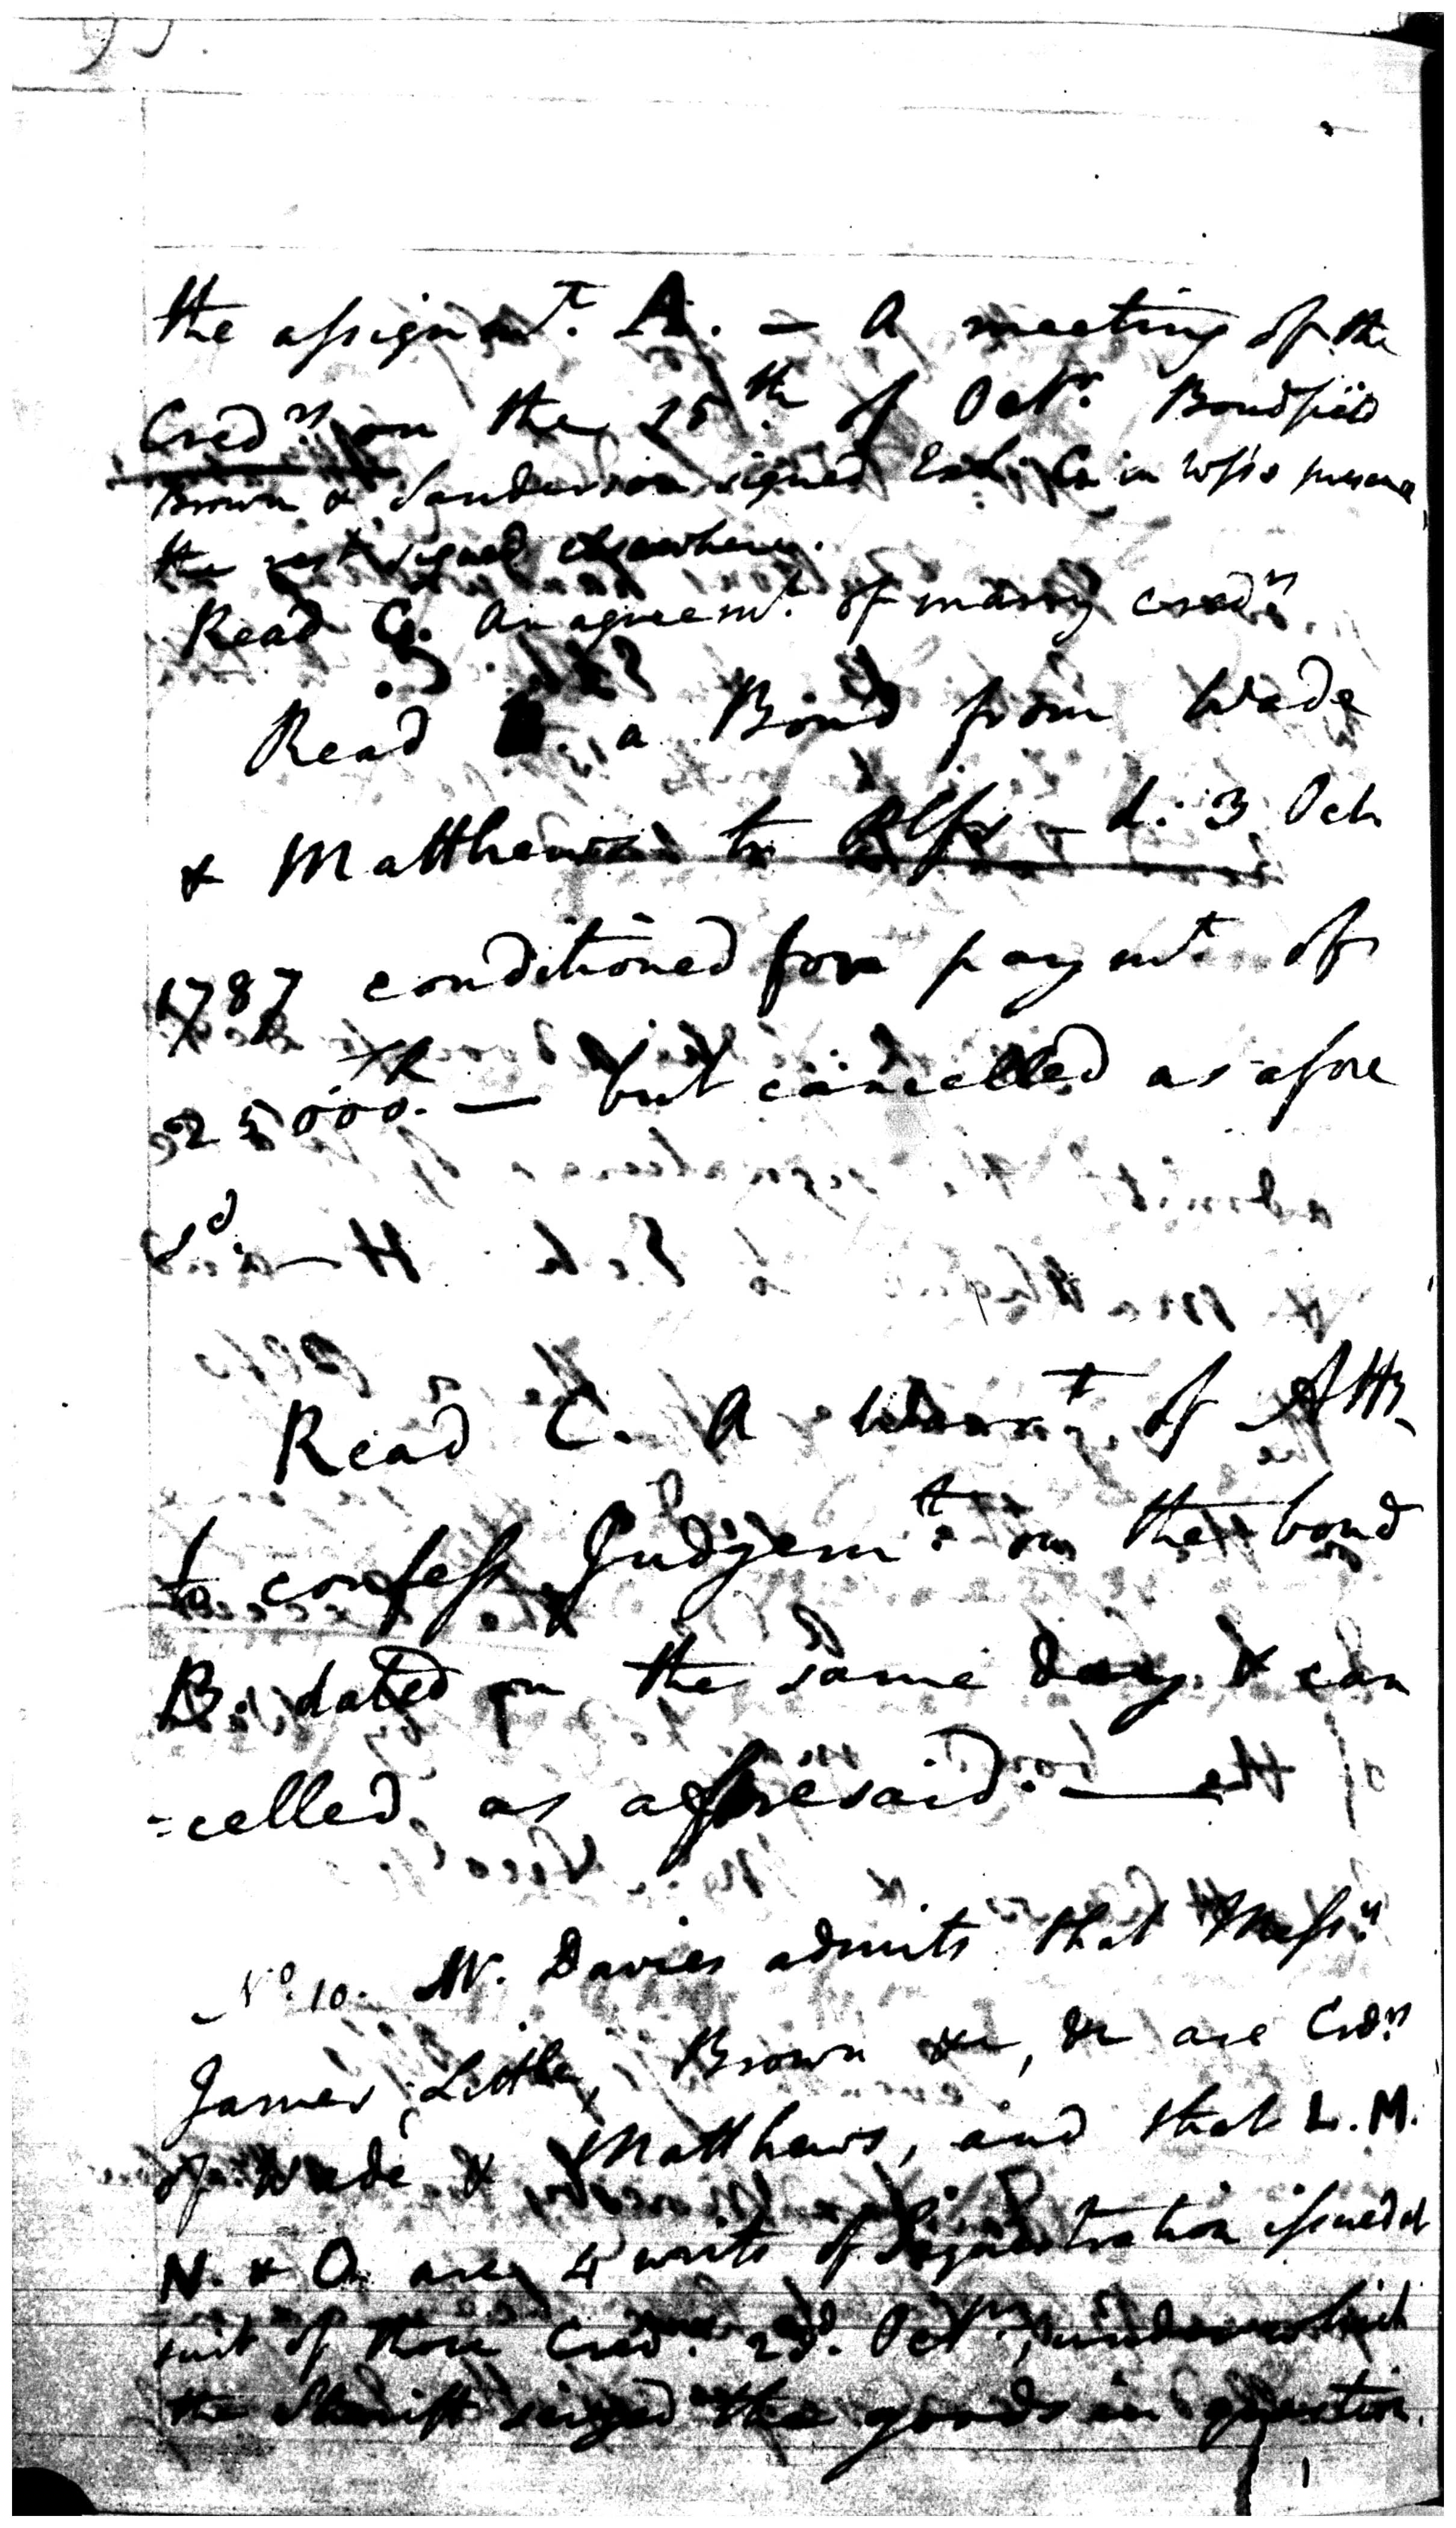 the assignmt. A. — A meeting of the
Credrs on the 25th of Octr. Bondfield
Brown & Sanderson signed Exh. G in Wss's presence
the rest signed elsewhere.
Read G. An agreemt. of many credrs
Read B. a Bond from Wade
& Matthews to Plfs — d. 3 Oct.
1787 conditioned for paymt. of
25000. — but cancelled as afore
sd.
Read C. A Warrt. of Atty
to confess Judgemt. on the bond
B. dated on the same day & can
=celled as aforesaid. —
No. 10. Mr. Davies admits that Messrs
James, Little, Brown &c, &c are Crdrs
of Wade & Matthews, and that L. M.
N. & O. are 4 writs of Sequestration issued at
suit of those Cred. 23d. Octr., under which
the Sheriff seized the goods in question.